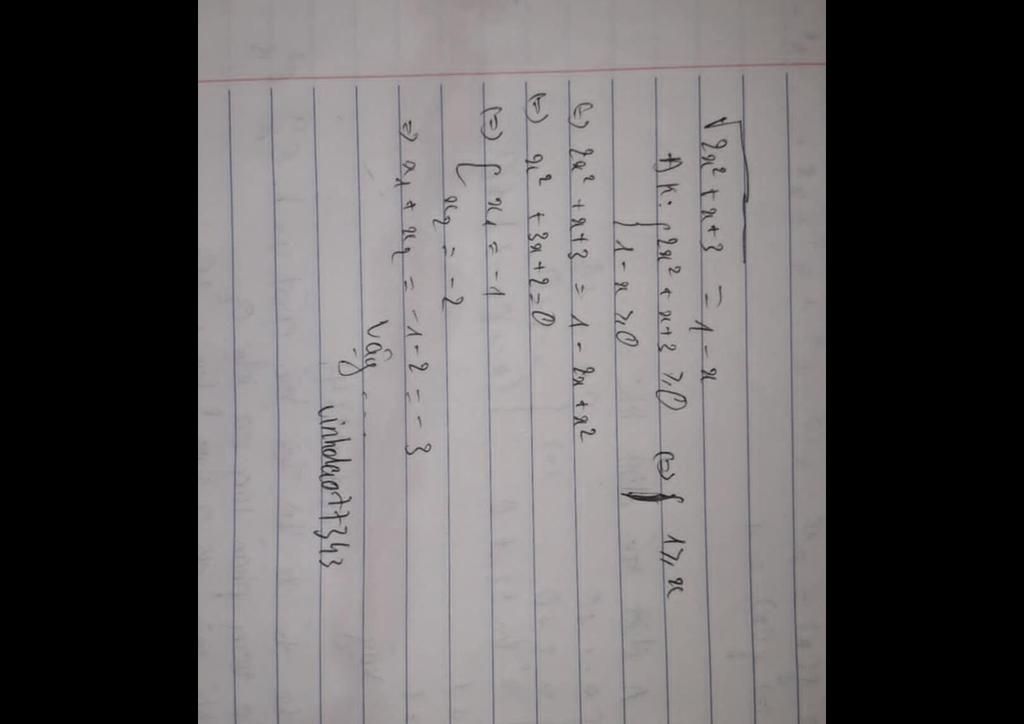 √(2x² + x + 3) = 1 - x
ĐK: { 2x² + x + 3 ≥ 0 (=) { 1 ≥ x
{ 1 - x ≥ 0
(=) 2x² + x + 3 = 1 - 2x + x²
(=) x² + 3x + 2 = 0
(=) { x₁ = -1
x₂ = -2
=> x₁ + x₂ = -1 - 2 = -3
Vậy ....
vinhdao77343